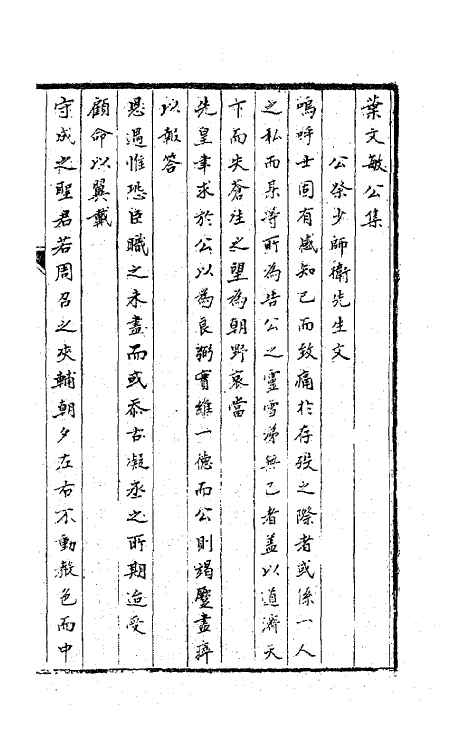 葉文敏公集
公祭少師衛先生文
嗚呼士固有感知己而致痛於存殁之際者或係一人
之私而某等所為告公之靈雪涕無已者蓋以道濟天
下而失蒼生之望為朝野哀當
先皇聿求於公以為良弼實維一德而公則竭蹷盡瘁
以報答
恩遇惟恐臣職之未盡而或忝古凝丞之所期迨受
顧命以翼戴
守成之聖君若周召之夾輔朝夕左右不動聲色而中